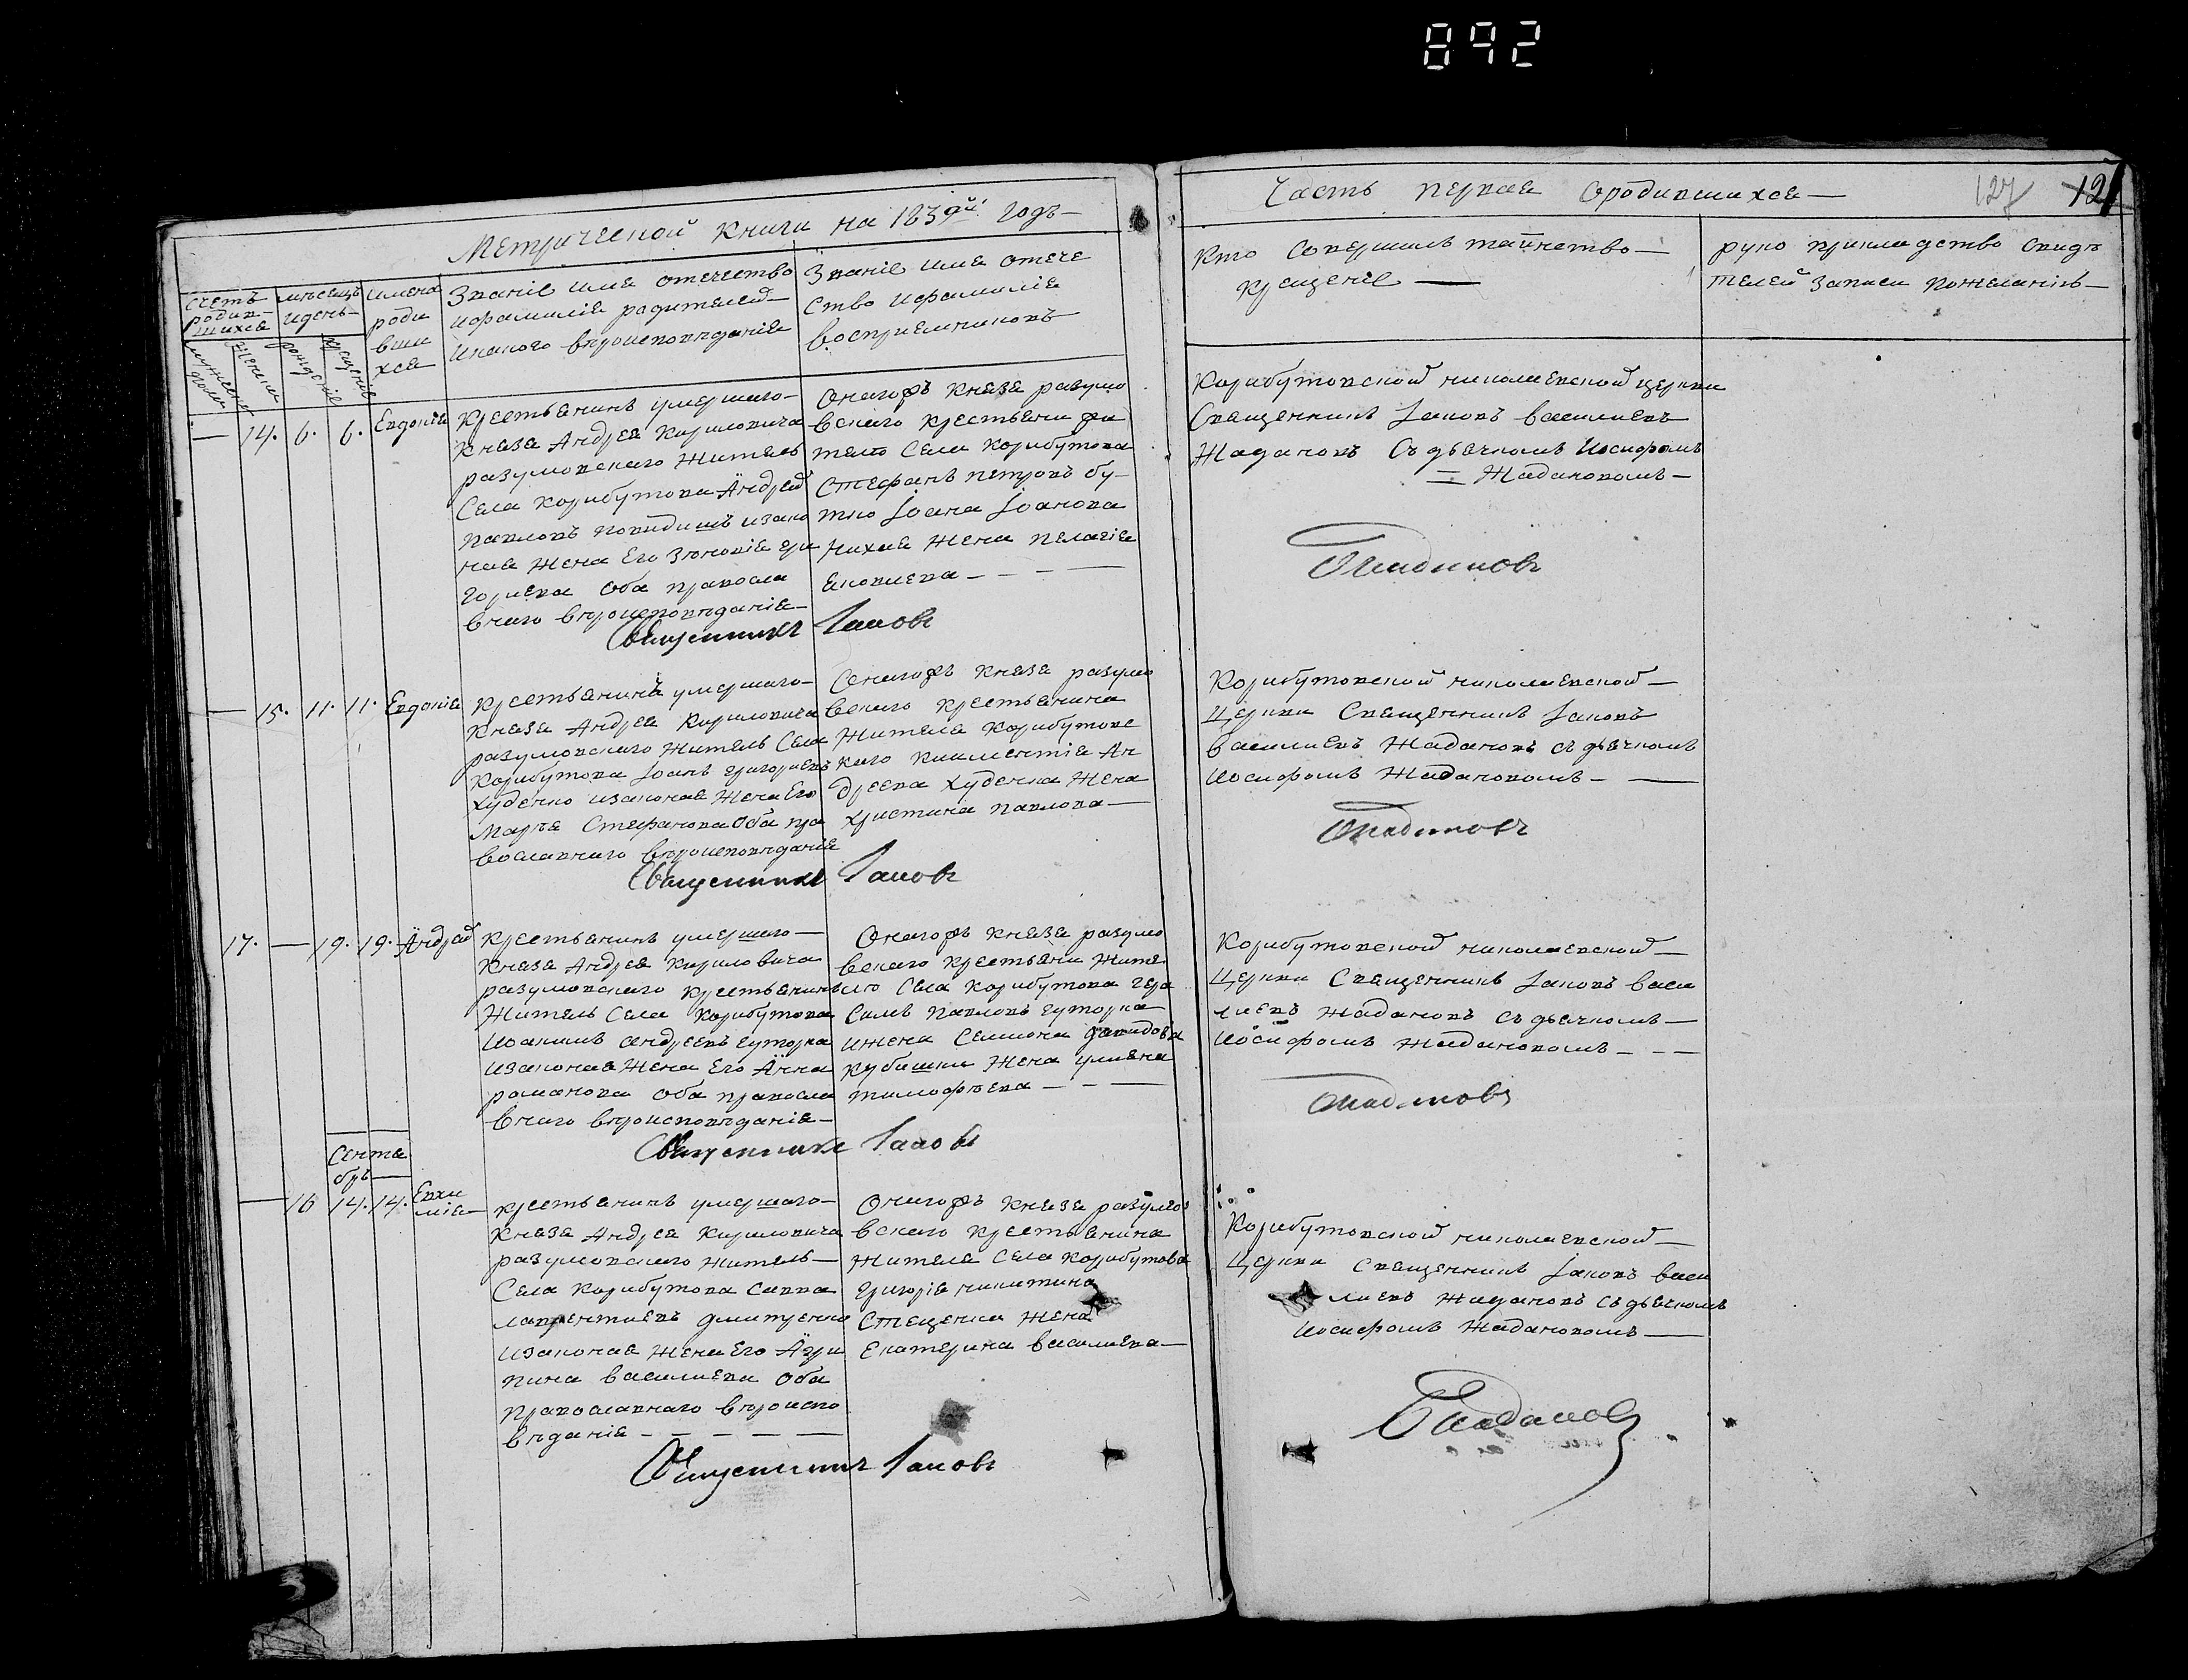 892
Метрической книги на 1839й годъ
Часть первая ородившихся
127
121
счетъ родив- шихся
мѣсецъ идень
имена роди вши хся
Званіе имя отечество ифамилія родителей икакого вѣроисповѣданія
Званіе имя отече ство ифамилія восприемниковъ
Кто совершилъ таинство крещеніе
руко прикладство свидѣ телей записи пожеланію
мужеска
женска
рожденіе
крещеніе
— 14. 6. 6. Евдокія
Крестьянинъ умершаго
Князя Андрея Кириловича
разумовскаго житель
Села Корибутова Андрей
Павловъ изако
ная жена Его Зѣновія гри
гориева оба правосла
внаго вѣроисповѣданія
Онагожъ Князя разумо
вскаго крестьяни жи
тели Села Корибутова
Стефанъ петровъ бу-
тко Іоана Іоанова
жена пелагія
Священникъ Іаковъ
Корибутовской николаевской церкви
Священникъ Іаковъ василиевъ
Жадановъ Съ дьячкомъ Иосифомъ
Жадановомъ
Жадановъ
— 15. 11. 11. Евдокія
Крестьянинъ умершаго
Князя Андрея Кириловича
разумовскаго житель Села
Корибутова Іоанъ григориевъ
худенко изаконая жена Его
Марѳа Стефанова оба пра
вославнаго вѣроисповѣданія
Онагожъ Князя разумо
вскаго крестьянина
жителя Корибутовс
каго климентія Ан
дреева худенка жена
христина павлова
Священникъ Іаковъ
Корибутовской николаевской
Церкви Священникъ Іаковъ
василиевъ Жадановъ съ дьячкомъ
Иосифомъ Жадановомъ
Жадановъ
17. — 19. 19. Андрей
Крестьянинъ умершаго
Князя Андрея Кириловича
разумовскаго крестьянинъ
житель Села Корибутова
Иоакимъ андреевъ гуторка
изаконая жена Его Анна
романова оба правосла
внаго вѣроисповѣданія
Онагожъ Князя разумо
вскаго крестьяни жите
ли Села Корибутова гера
симъ павловъ гуторка
ижена Семиона давидова
кубишки жена улияна
тимофѣева
Священникъ Іаковъ
Корибутовской николаевской
Церкви Священникъ Іаковъ васи
лиевъ Жадановъ съ дьячкомъ
Иосифомъ Жадановомъ
Жадановъ
Сентя
брь
— 16 14. 14. Евхи
мія
крестьянинъ умершаго
Князя Андрея Кириловича
разумовскаго житель
Села Корибутова Савва
лаврентиевъ дмитренко
изаконая жена Его Агри
пина василиева оба
православнаго вѣроиспо
вѣданія
Онагожъ Князя разумо
вскаго крестьянина
жителя Села Корибутова
григорія никитина
Стеценка жена
Екатерина василиева
Священникъ Іаковъ
Корибутовской николаевской
Церкви Священникъ Іаковъ васи
лиевъ Жадановъ съ дьячкомъ
Иосифомъ Жадановомъ
Жадановъ